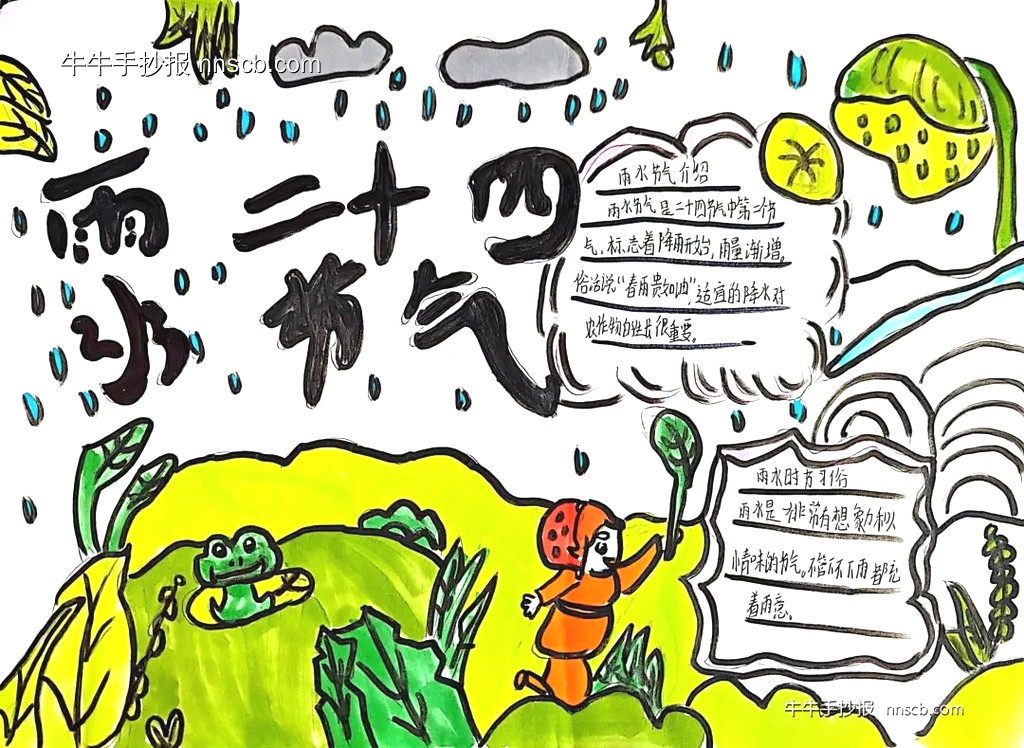 牛牛手抄报 nnscb.com
雨水
二十四
节气
雨水节气介绍
雨水节气是二十四节气中第二个节
气,标志着降雨开始,雨量渐增。
俗话说“春雨贵如油”,适宜的降水对
农作物的生长很重要。
雨水时节习俗
雨水是一排富有想象力和人
情味的节气。不管下不下雨都充
着雨意。
牛牛手抄报 nnscb.com